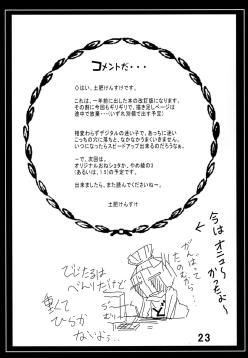 コメントだ・・・
Oはい、土肥けんすけです。
これは、一年前に出した本の改訂版になります。
その割に今回もギリギリで、描き足しページは
途中で放棄・・・(いずれ別個で出す予定)
相変わらずデジタルの迷い子で、あっちに迷い
こっちの穴に落ちと、なかなかうまくいきません。
いつになったらスピードアップ出来るのだろうなぁ。
~で、次回は、
オリジナルおねショタか、やめ綾の3
(あるいは、1.5)の予定です。
出来ましたら、また読んでくださいねー。
土肥けんすけ
今はオニューかったな~
がんばって
たのむぜ・・・
びじたるは
べんりだけど
重くて
ひらか
ないよぅ・・・
23